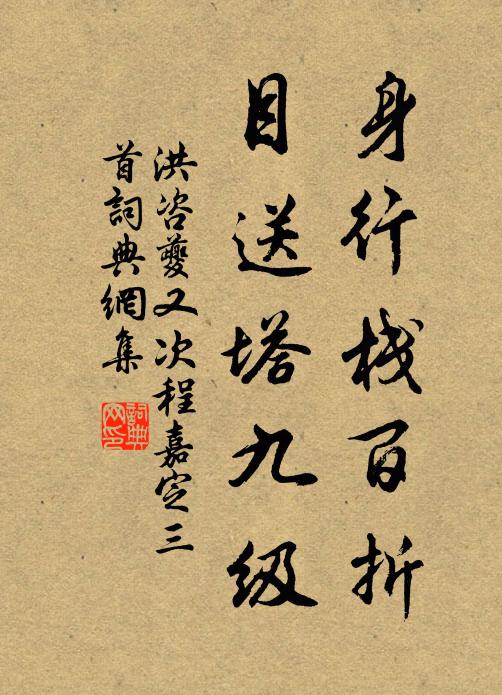 身行栈百折
目送塔九级
洪咨夔又次程嘉定三
首詞典網集
詞典
网印